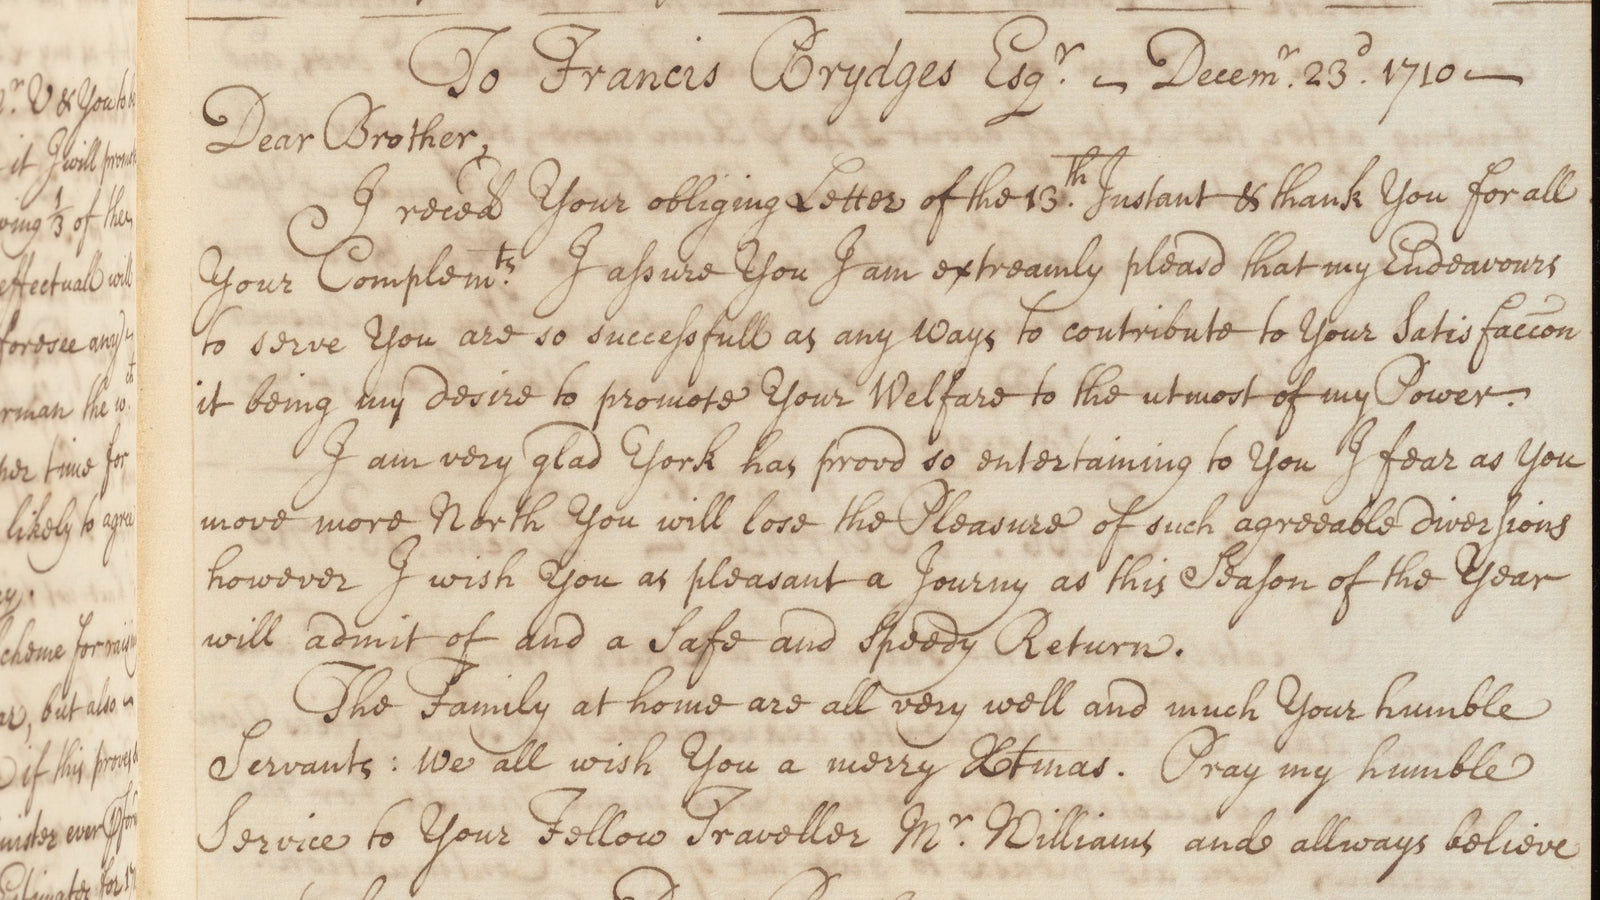 r. V & You to be
it I will prom
ving 1/3 of the
effectuall will
foresee any
rman the w.ch
her time for
likely to agree
cheme for raising
ar, but also
if this proves
nister ever
Estimates for 17
To Francis Brydges Esqr. Decemr. 23d. 1710
Dear Brother,
I reced Your obliging Letter of the 13th. Instant & thank You for all
Your Complemts. I assure You I am extreamly pleasd that my Endeavours
to serve You are so successfull as any ways to contribute to Your Satisfaccon
it being my desire to promote Your Welfare to the utmost of my Power.
I am very glad York has provd so entertaining to You I fear as You
move more North You will lose the Pleasure of such agreeable diversions
however I wish You as pleasant a Journy as this Season of the Year
will admit of and a Safe and Speedy Return.
The Family at home are all very well and much Your humble
Servants: We all wish You a merry Xtmas. Pray my humble
Service to Your Fellow Traveller Mr. Williams ande allways believe